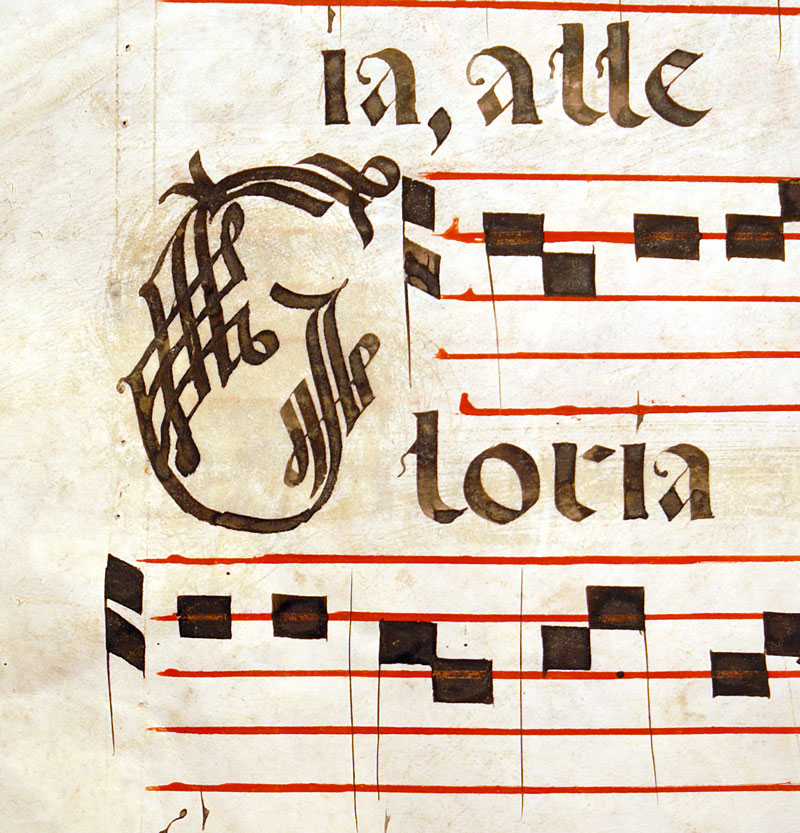 ia, alle
Gloria